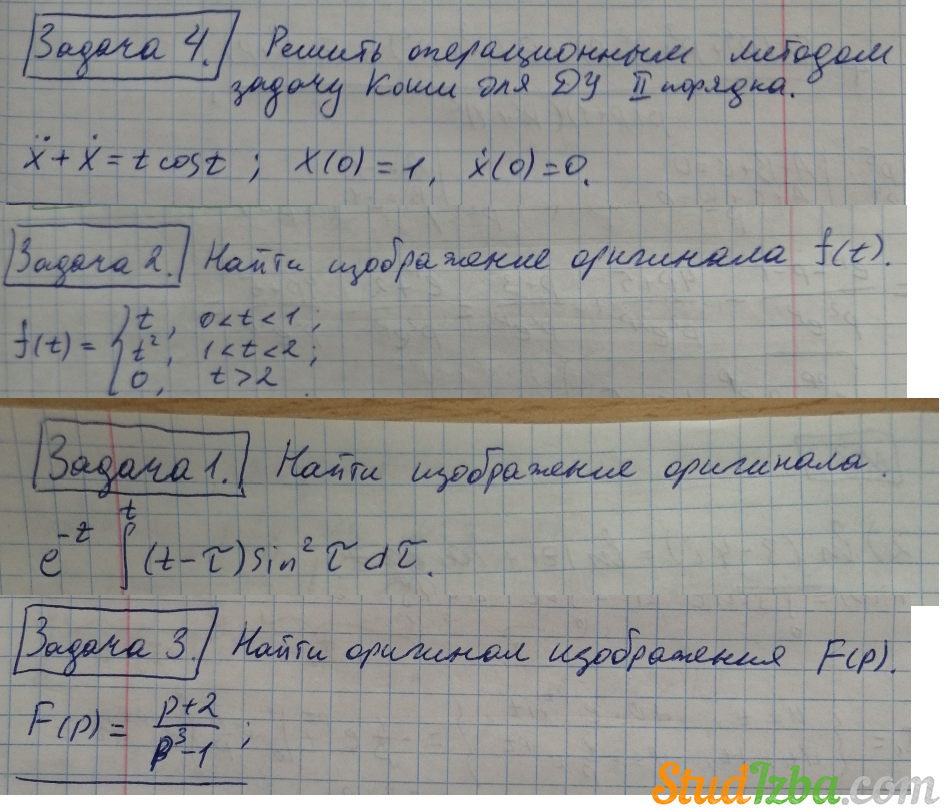 Задача 4. Решить операционным методом
задачу Коши для ДУ II порядка.
ẍ + ẋ = t cos t ; x(0) = 1, ẋ(0) = 0.
Задача 2. Найти изображение оригинала f(t).
f(t) = { t, 0 < t < 1 ;
t², 1 < t < 2 ;
0, t > 2
Задача 1. Найти изображение оригинала.
e^{-t} ∫^t (t-τ) sin² τ dτ.
Задача 3. Найти оригинал изображения F(p).
F(p) = (p+2)/(p³-1) ;
StudIzba.com